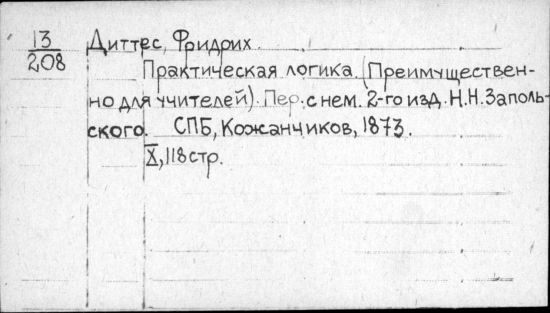 13 Диттес, Фридрих.
208
Практическая логика. (Преимуществен-
но для учителей). Пер. с нем. 2-го изд. Н.Н. Заполь-
ского. СПБ, Кожанчиков, 1873.
X, 118 стр.